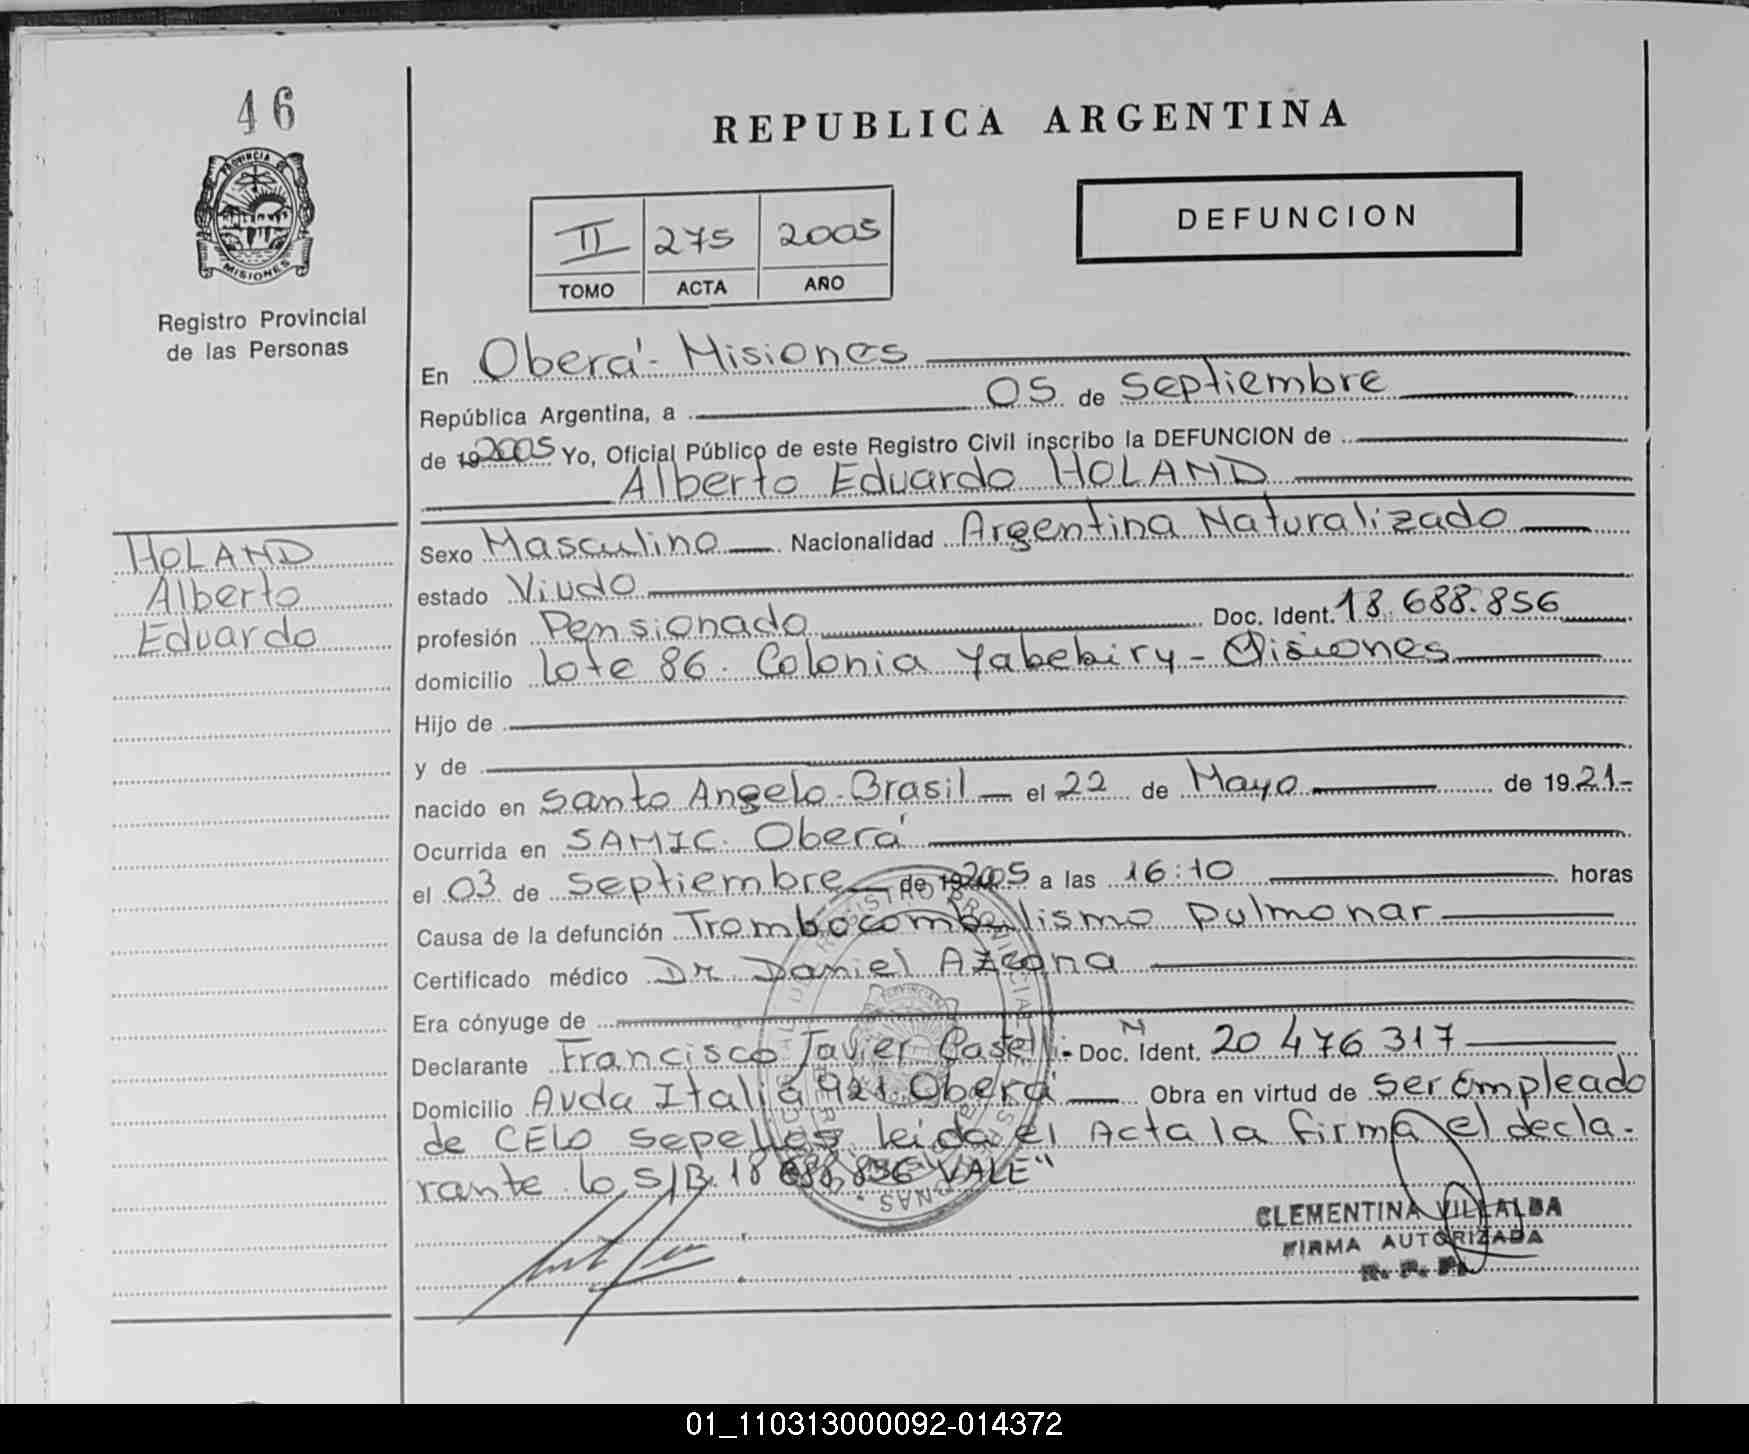 46
PROVINCIA DE
MISIONES
Registro Provincial
de las Personas
REPUBLICA ARGENTINA
II 275 2005
TOMO ACTA AÑO
DEFUNCION
En Oberá - Misiones
República Argentina, a 05 de Septiembre
de 192005 Yo, Oficial Público de este Registro Civil inscribo la DEFUNCION de
Alberto Eduardo HOLAND
HOLAND
Alberto
Eduardo
Sexo Masculino Nacionalidad Argentina Naturalizado
estado Viudo
profesión Pensionado Doc. Ident. 18.688.856
domicilio lote 86. Colonia Yabebiry - Misiones
Hijo de
y de
nacido en Santo Angelo - Brasil el 22 de Mayo de 1921-
Ocurrida en SAMIC. Oberá
el 03 de Septiembre de 192005 a las 16:10 horas
Causa de la defunción Pulmonar
Certificado médico Dr. Daniel Azcona
Era cónyuge de
Declarante Francisco Javier Doc. Ident. 20 476 317
Domicilio Avda Italia 921 Oberá Obra en virtud de ser Empleado
de CELO Sepelios, leída el Acta la firma el decla-
rante lo S/B. 18 688.856 VALE"
CLEMENTINA VILLALBA
FIRMA AUTORIZADA
R. P. P.
01_110313000092-014372